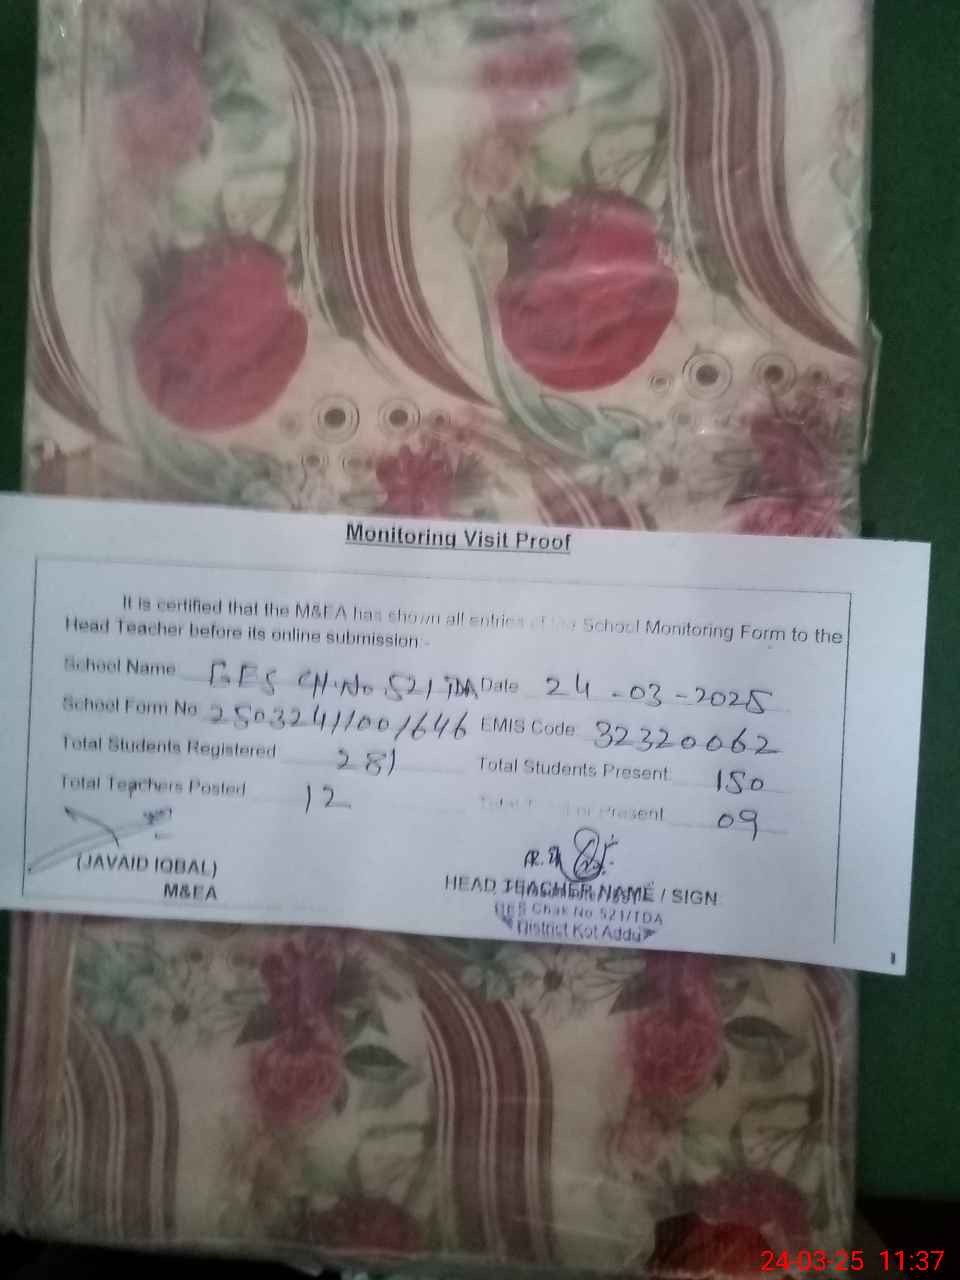 Monitoring Visit Proof
It is certified that the M&EA has shown all entries of the School Monitoring Form to the
Head Teacher before its online submission:-
School Name GES CH.No. 521 TDA Date 24-03-2025
School Form No 25032411001646 EMIS Code 32320062
Total Students Registered 281 Total Students Present 150
Total Teachers Posted 12 Present 09
(JAVAID IQBAL)
M&EA
HEAD TEACHER NAME / SIGN
GES Chak No 521/TDA
District Kot Addu
24-03-25 11:37